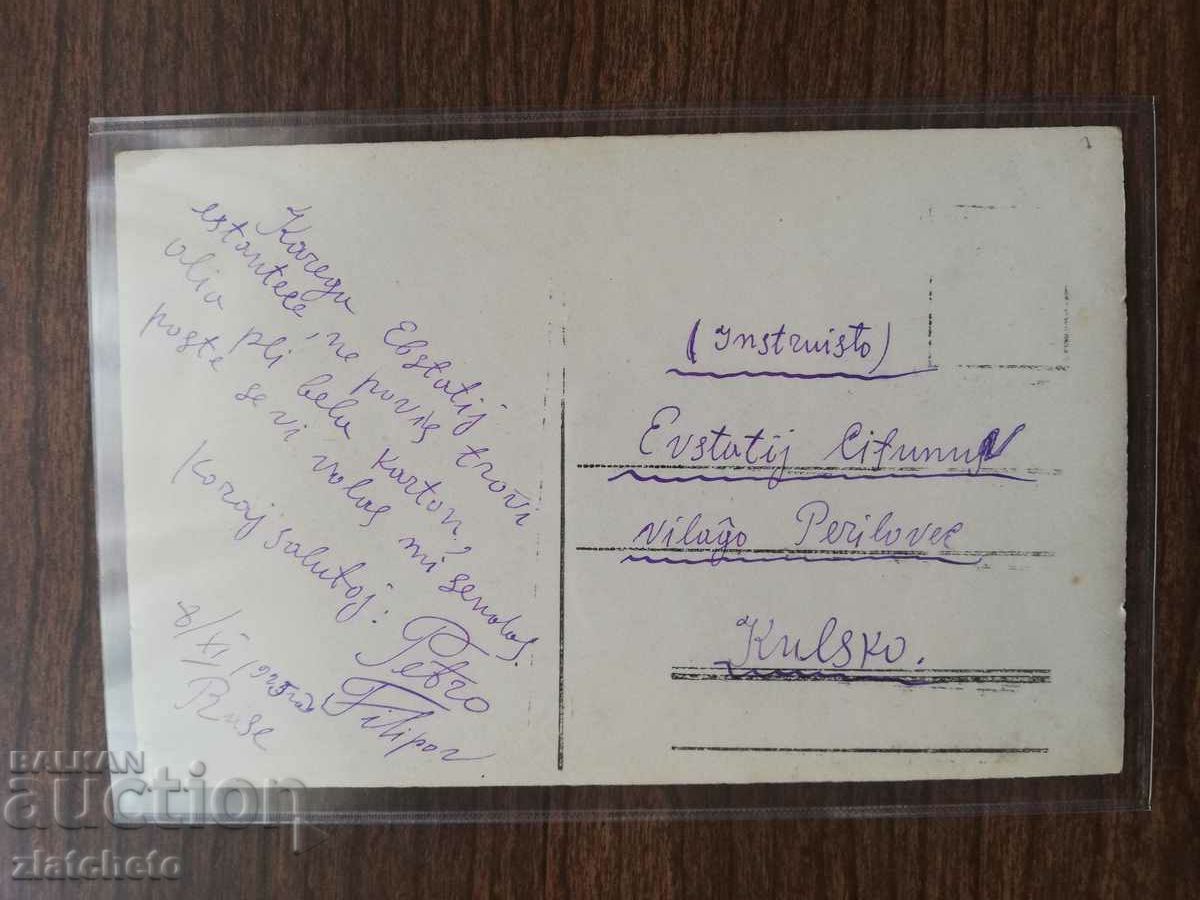 Karega Ebstatij
estontece, ne povis trovi
alia pli bela karton,
poste se vi volas mi sendos.
Koraj salutoj:
Petro
Filipov
8/XI 1925
Ruse
(Instruisto)
Evstatij
vilaĝo Perilovec
Kulsko.
BALKAN
auction
zlatcheto